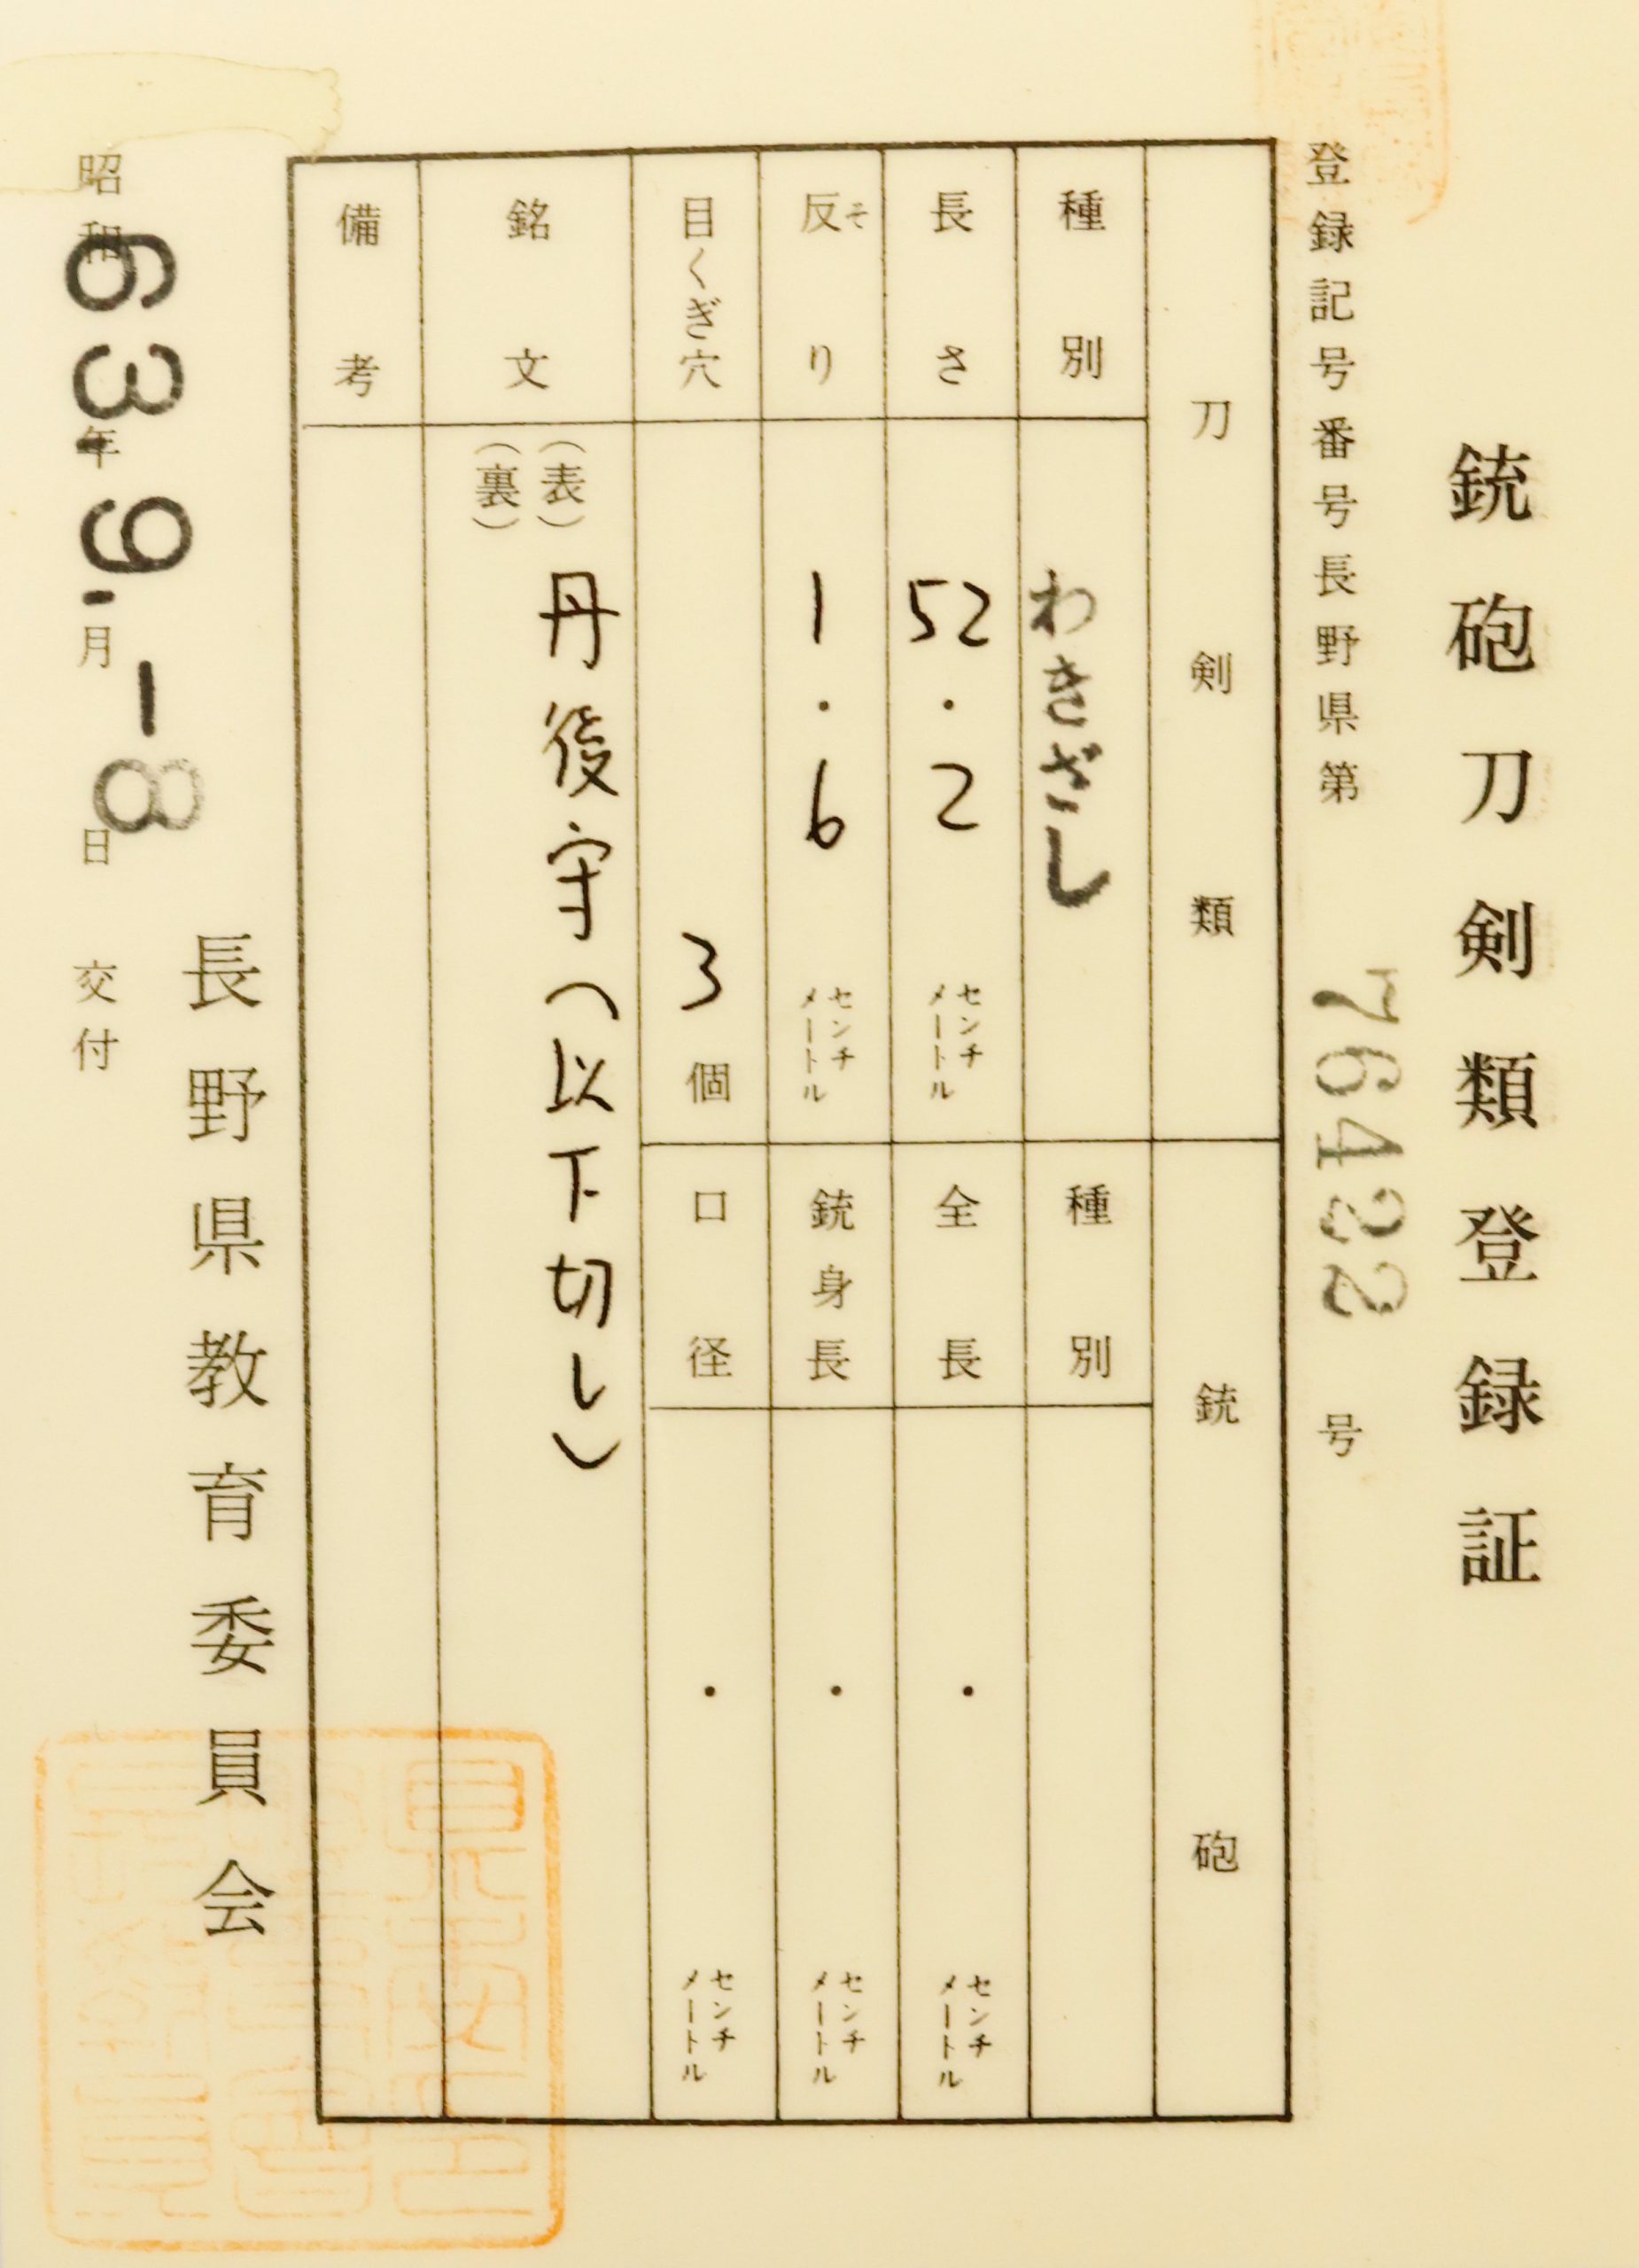 銃砲刀剣類登録証
登録記号番号長野県第 76422 号
刀剣類
銃砲
種別 わきざし
種別
長さ 52.2 センチメートル
全長 ・ センチメートル
反り そ 1.6 センチメートル
銃身長 ・ センチメートル
目くぎ穴 3 個
口径 ・ センチメートル
銘文 (表) 丹後守(以下切レ)
(裏)
備考
長野県教育委員会
昭和 63.年 9.月 -8 日 交付